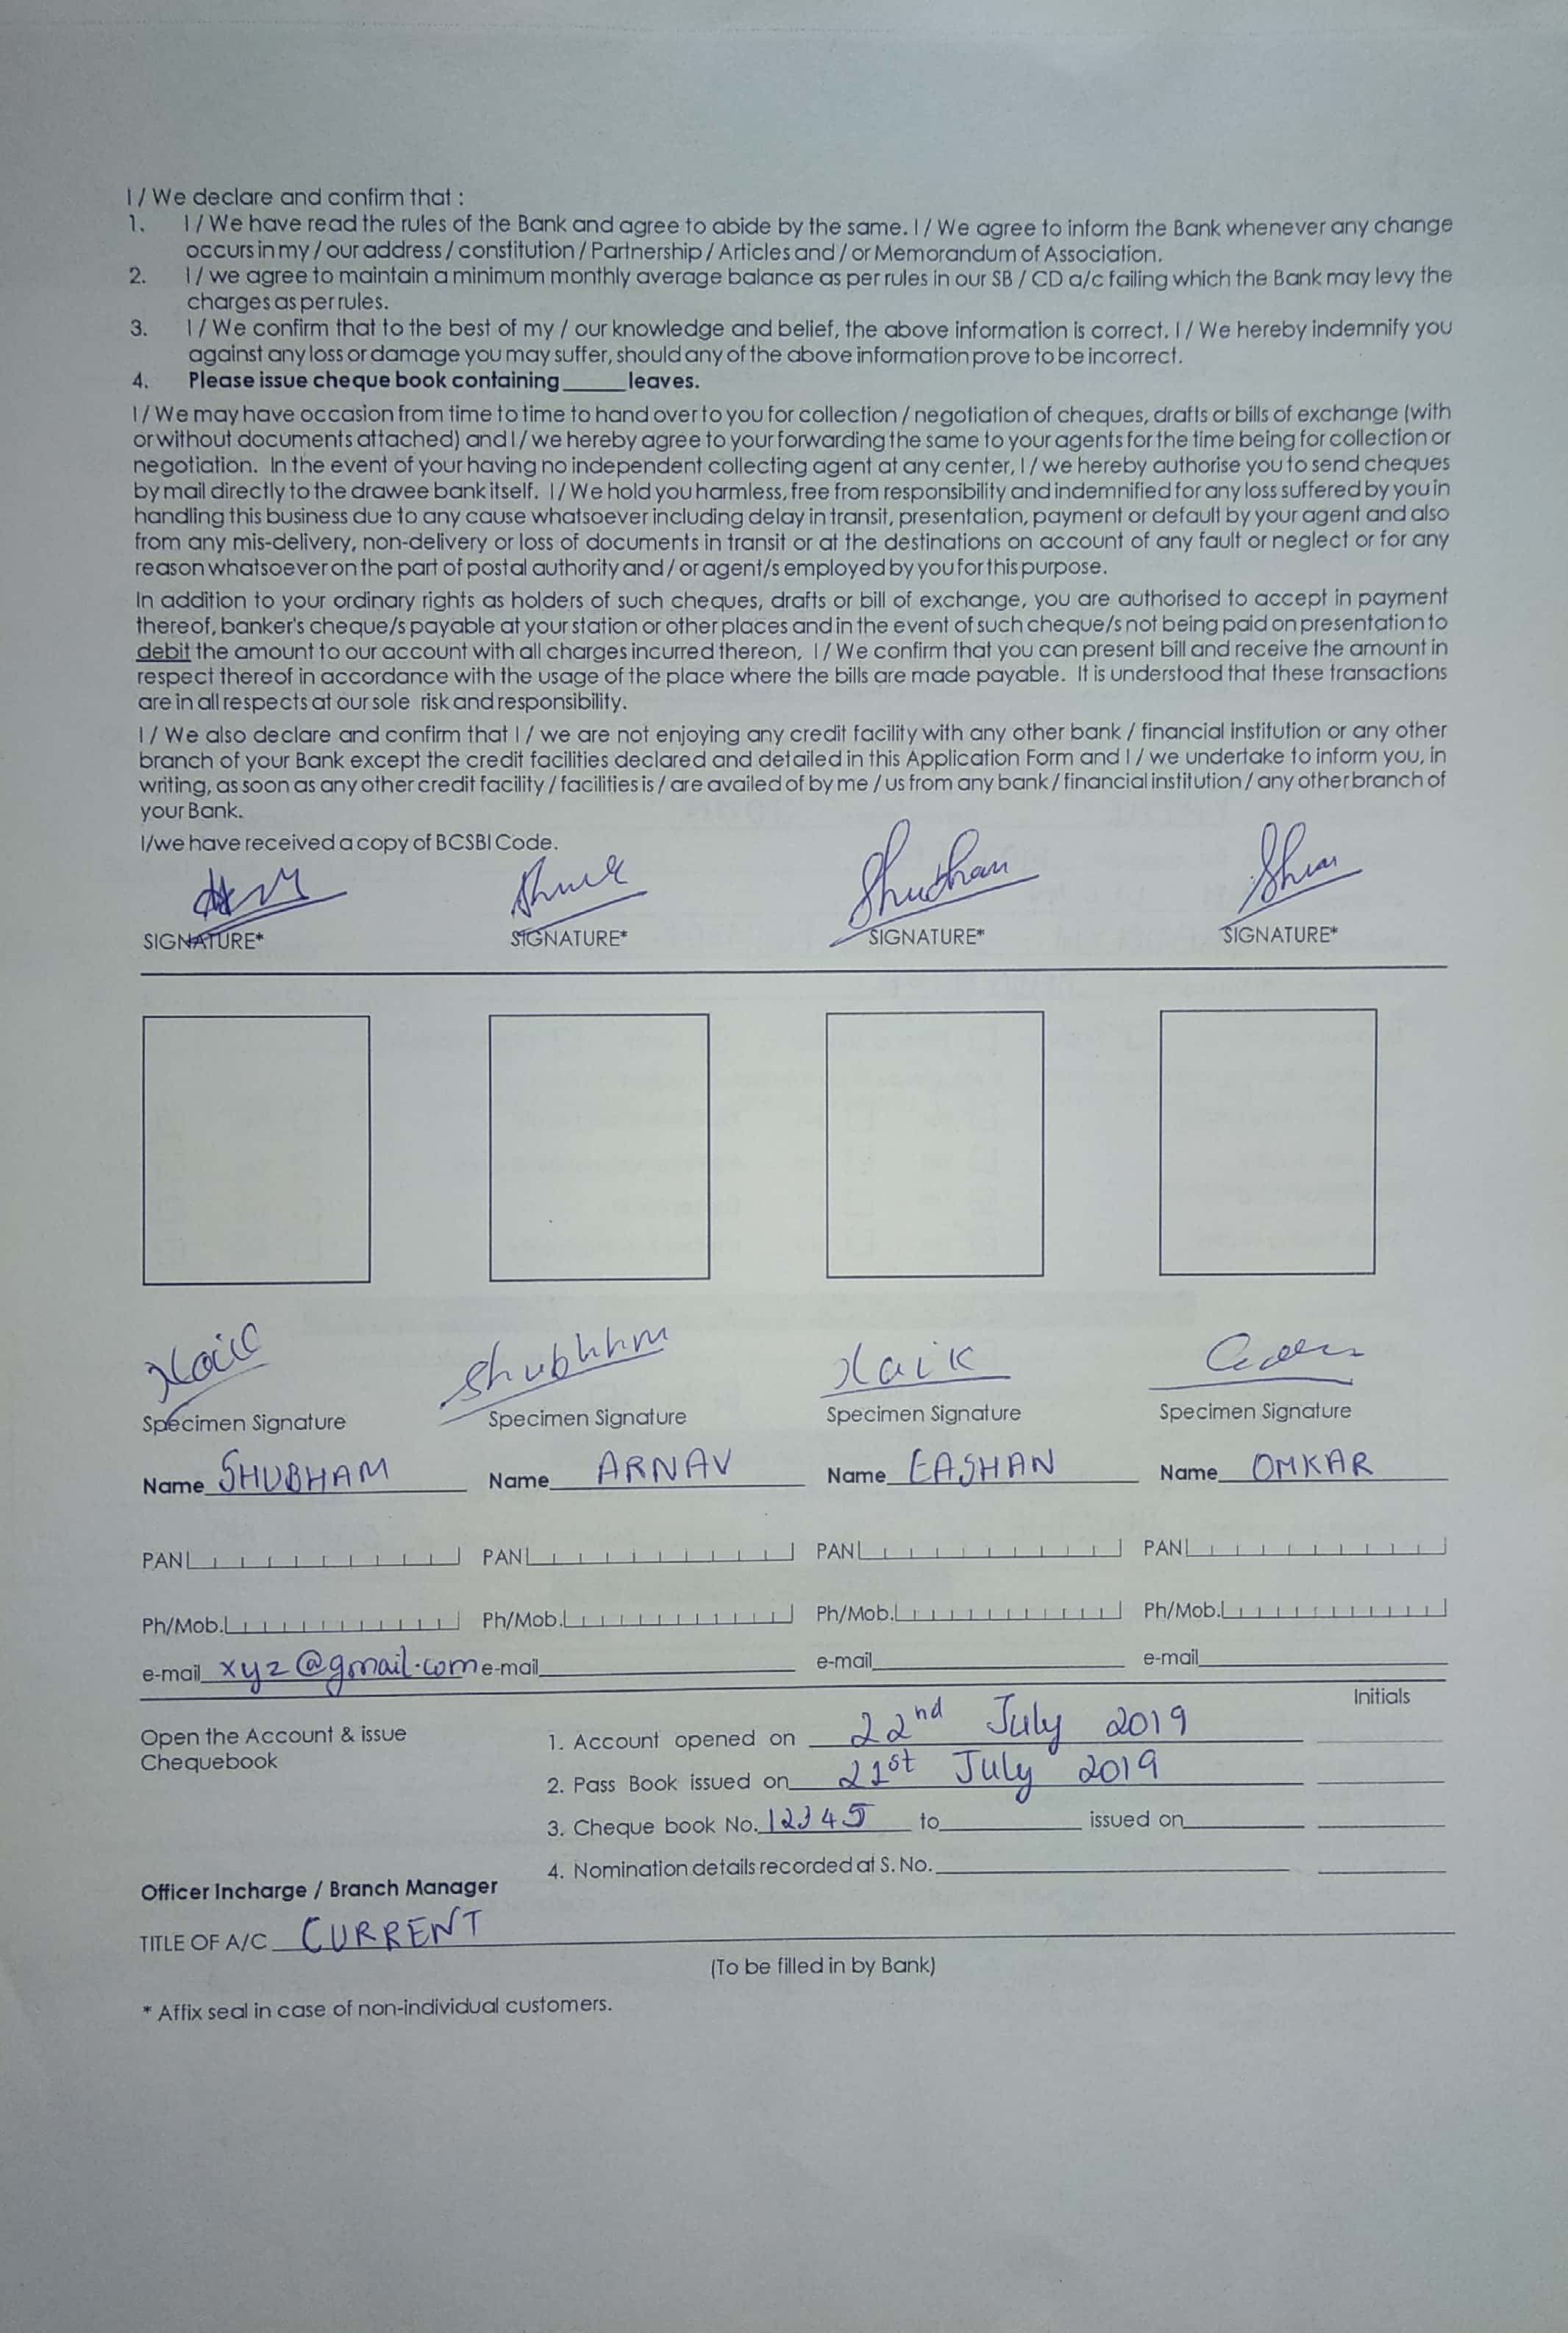 I / We declare and confirm that :
1. I / We have read the rules of the Bank and agree to abide by the same. I / We agree to inform the Bank whenever any change
occurs in my / our address / constitution / Partnership / Articles and / or Memorandum of Association.
2. I / we agree to maintain a minimum monthly average balance as per rules in our SB / CD a/c failing which the Bank may levy the
charges as per rules.
3. I / We confirm that to the best of my / our knowledge and belief, the above information is correct. I / We hereby indemnify you
against any loss or damage you may suffer, should any of the above information prove to be incorrect.
4. Please issue cheque book containing_____leaves.
I / We may have occasion from time to time to hand over to you for collection / negotiation of cheques, drafts or bills of exchange (with
or without documents attached) and I / we hereby agree to your forwarding the same to your agents for the time being for collection or
negotiation. In the event of your having no independent collecting agent at any center, I / we hereby authorise you to send cheques
by mail directly to the drawee bank itself. I / We hold you harmless, free from responsibility and indemnified for any loss suffered by you in
handling this business due to any cause whatsoever including delay in transit, presentation, payment or default by your agent and also
from any mis-delivery, non-delivery or loss of documents in transit or at the destinations on account of any fault or neglect or for any
reason whatsoever on the part of postal authority and / or agent/s employed by you for this purpose.
In addition to your ordinary rights as holders of such cheques, drafts or bill of exchange, you are authorised to accept in payment
thereof, banker's cheque/s payable at your station or other places and in the event of such cheque/s not being paid on presentation to
debit the amount to our account with all charges incurred thereon, I / We confirm that you can present bill and receive the amount in
respect thereof in accordance with the usage of the place where the bills are made payable. It is understood that these transactions
are in all respects at our sole risk and responsibility.
I / We also declare and confirm that I / we are not enjoying any credit facility with any other bank / financial institution or any other
branch of your Bank except the credit facilities declared and detailed in this Application Form and I / we undertake to inform you, in
writing, as soon as any other credit facility / facilities is / are availed of by me / us from any bank / financial institution / any other branch of
your Bank.
I/we have received a copy of BCSBI Code.
SIGNATURE* SIGNATURE* SIGNATURE* SIGNATURE*
Naik Shubhhm Naik
Specimen Signature Specimen Signature Specimen Signature Specimen Signature
Name SHUBHAM Name ARNAV Name EASHAN Name OMKAR
PAN PAN PAN PAN
Ph/Mob. Ph/Mob. Ph/Mob. Ph/Mob.
e-mail xyz@gmail.com e-mail e-mail e-mail
Initials
Open the Account & issue
Chequebook
1. Account opened on 22nd July 2019
2. Pass Book issued on 21st July 2019
3. Cheque book No. 12345 to issued on
4. Nomination details recorded at S. No.
Officer Incharge / Branch Manager
TITLE OF A/C CURRENT
(To be filled in by Bank)
* Affix seal in case of non-individual customers.